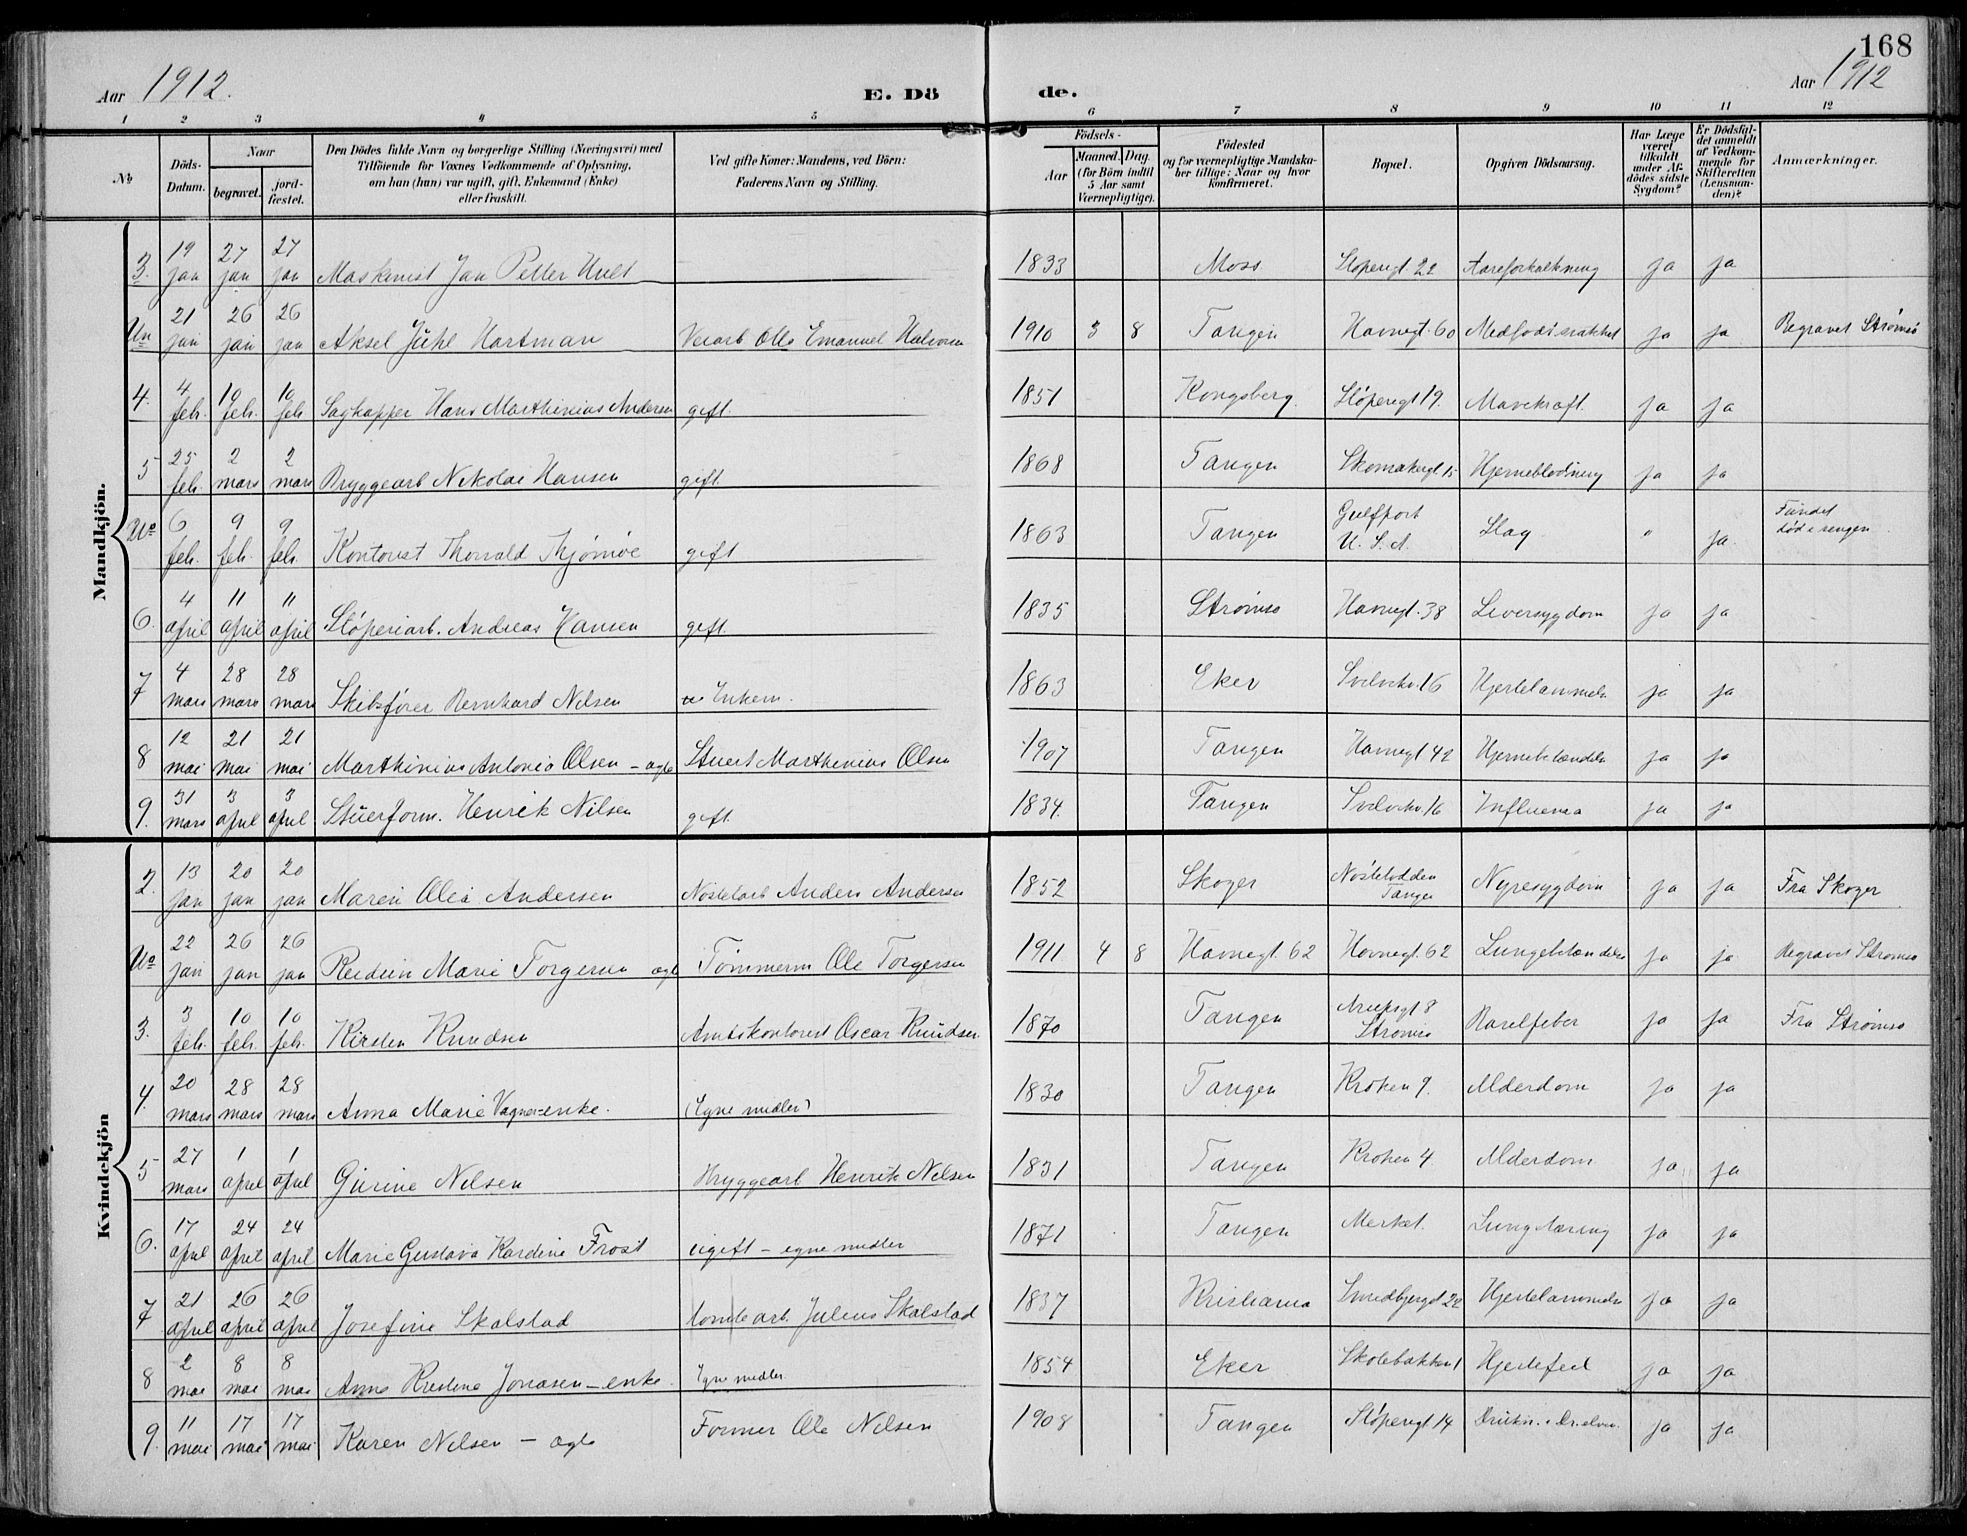 168
Aar 1912.
E. Dö
de.
Aar 1912
1 2 3 4 5 6 7 8 9 10 11 12
No
Döds-Datum.
Naar
begravet.
jord-fæstet.
Den Dödes fulde Navn og borgerlige Stilling (Næringsvei) med
Tilföiende for Voxnes Vedkommende af Oplysning,
om han (hun) var ugift, gift, Enkemand (Enke)
eller fraskilt.
Ved gifte Koner: Mandens, ved Börn:
Faderens Navn og Stilling.
Födsels-
Aar
Maaned. Dag.
(for Börn indtil
5 Aar samt
Værnepligtige).
Födested
og for værnepligtige Mandska-
ber tillige: Naar og hvor
konfirmeret.
Bopæl.
Opgiven Dödsaarsag.
Har Læge
været
tilkaldt
under Af-
dödes sidste
Sygdom?
Er Dödsfal-
det anmeldt
af Vedkom-
mende for
Skifteretten
(Lensman-
den)?
Anmærkninger.
Mandkjön.
3. 19 jan 27 jan 27 jan Maskinist Jan Petter Hult 1833 Moss Støperigt 22 Aareforkalkning ja ja
Un 21 jan 26 jan 26 jan Aksel Juhl Hartman Verarb Ole Emanuel Halvorsen 1910 3 8 Tangen Havnegt. 60 Medfødt svakhet ja ja Begravet Strømsø
4. 4 feb. 10 feb. 10 feb Sagkapper Hans Marthinius Andersen gift. 1851 Kongsberg. Støperigt 19. Mavekræft. ja ja
5 25 feb. 2 mars 2 mars Bryggearb Nikolai Hansen gift 1868 Tangen Skomakergt 15 Hjerneblødning ja ja
Uo 6 feb. 9 feb. 9 feb. Kontorist Thorvald Tjømøe gift 1863 Tangen Gulfport U.S.A. Slag " ja. Fundet død i sengen
6. 4 april 11 april 11 april Støperiarb. Andreas Hansen gift. 1835 Strømsø Havnegt. 38 Leversygdom ja ja
7 4 mars 28 mars 28 mars Skibsfører Bernhard Nilsen Enkem. 1863 Eker Svelvikv. 16 Hjertelammelse ja ja
8 12 mai 21 mai 21 mai Marthinius Antonio Olsen – agte Stuert Marthinius Olsen 1907 Tangen Havnegt 42 Hjernebetændelse ja ja
9. 31 mars 3 april 3 april Stuerform. Henrik Nilsen gift. 1834. Tangen Svelvikv. 16 Influensa ja ja
Kvindekjön
2. 13 jan 20 jan 20 jan Maren Olea Andersen Nøstetarb Anders Andersen 1852 Skoger Nøstelodden Tangen Nyresygdom ja ja Fra Skoger
Uo 22 jan 26 jan 26 jan Reidun Marie Torgersen agt Tømmerm Ole Torgersen 1911 4 8 Havnegt. 62 Havnegt. 62 Lungebetændelse ja ja Begravet Strømsø
3. 3 feb. 10 feb. 10 feb. Kirsten Knudsen Amtskontorist Oscar Knudsen. 1870 Tangen Strømsø Barselfeber ja ja Fra Strømsø
4. 20 mars 28 mars 28 mars Anna Marie Vagner=enke. (Egne midler) 1830 Tangen Kroken 9. Alderdom ja ja
5 27 mars 1 april 1 april Gurine Nilsen Bryggearb Henrik Nilsen 1831 Tangen Kroken 4. Alderdom ja ja
6. 17 april 24 april 24 april Marie Gustava Kardine Frost ugift – egne midler 1871 Tangen Merket. Lungetæring ja ja
7 21 april 26 april 26 april Josefine Skalstad tomtearb. Julius Skalstad 1837 Kristiania Smedbjergt 22 Hjertelammelse ja ja
8 2 mai 8 mai 8 mai Anne Kristine Jonasen – enke. Egne midler 1854 Eker Skolebakken 1 Hjertefeil ja ja
9. 11 mai 17 mai 17 mai Karen Nilsen – agte Former Ole Nilsen 1908 Tangen Støperigt 14 Drukn. i Dr.elven. ja ja